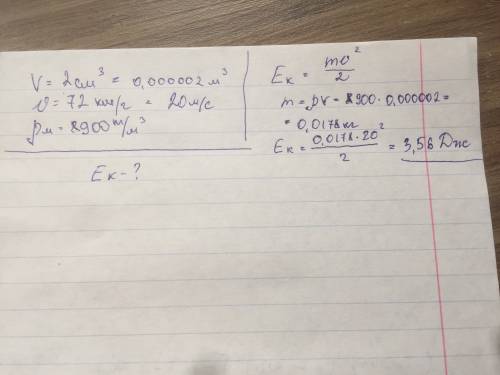 V = 2 см³ = 0,000002 м³
υ = 72 км/г = 20 м/с
ρм = 8900 m/м³
Eк - ?
Eк = mυ²/2
m = ρV = 8900 · 0,000002 =
= 0,0178 кг
Eк = 0,0178 · 20²/2 = 3,56 Дж